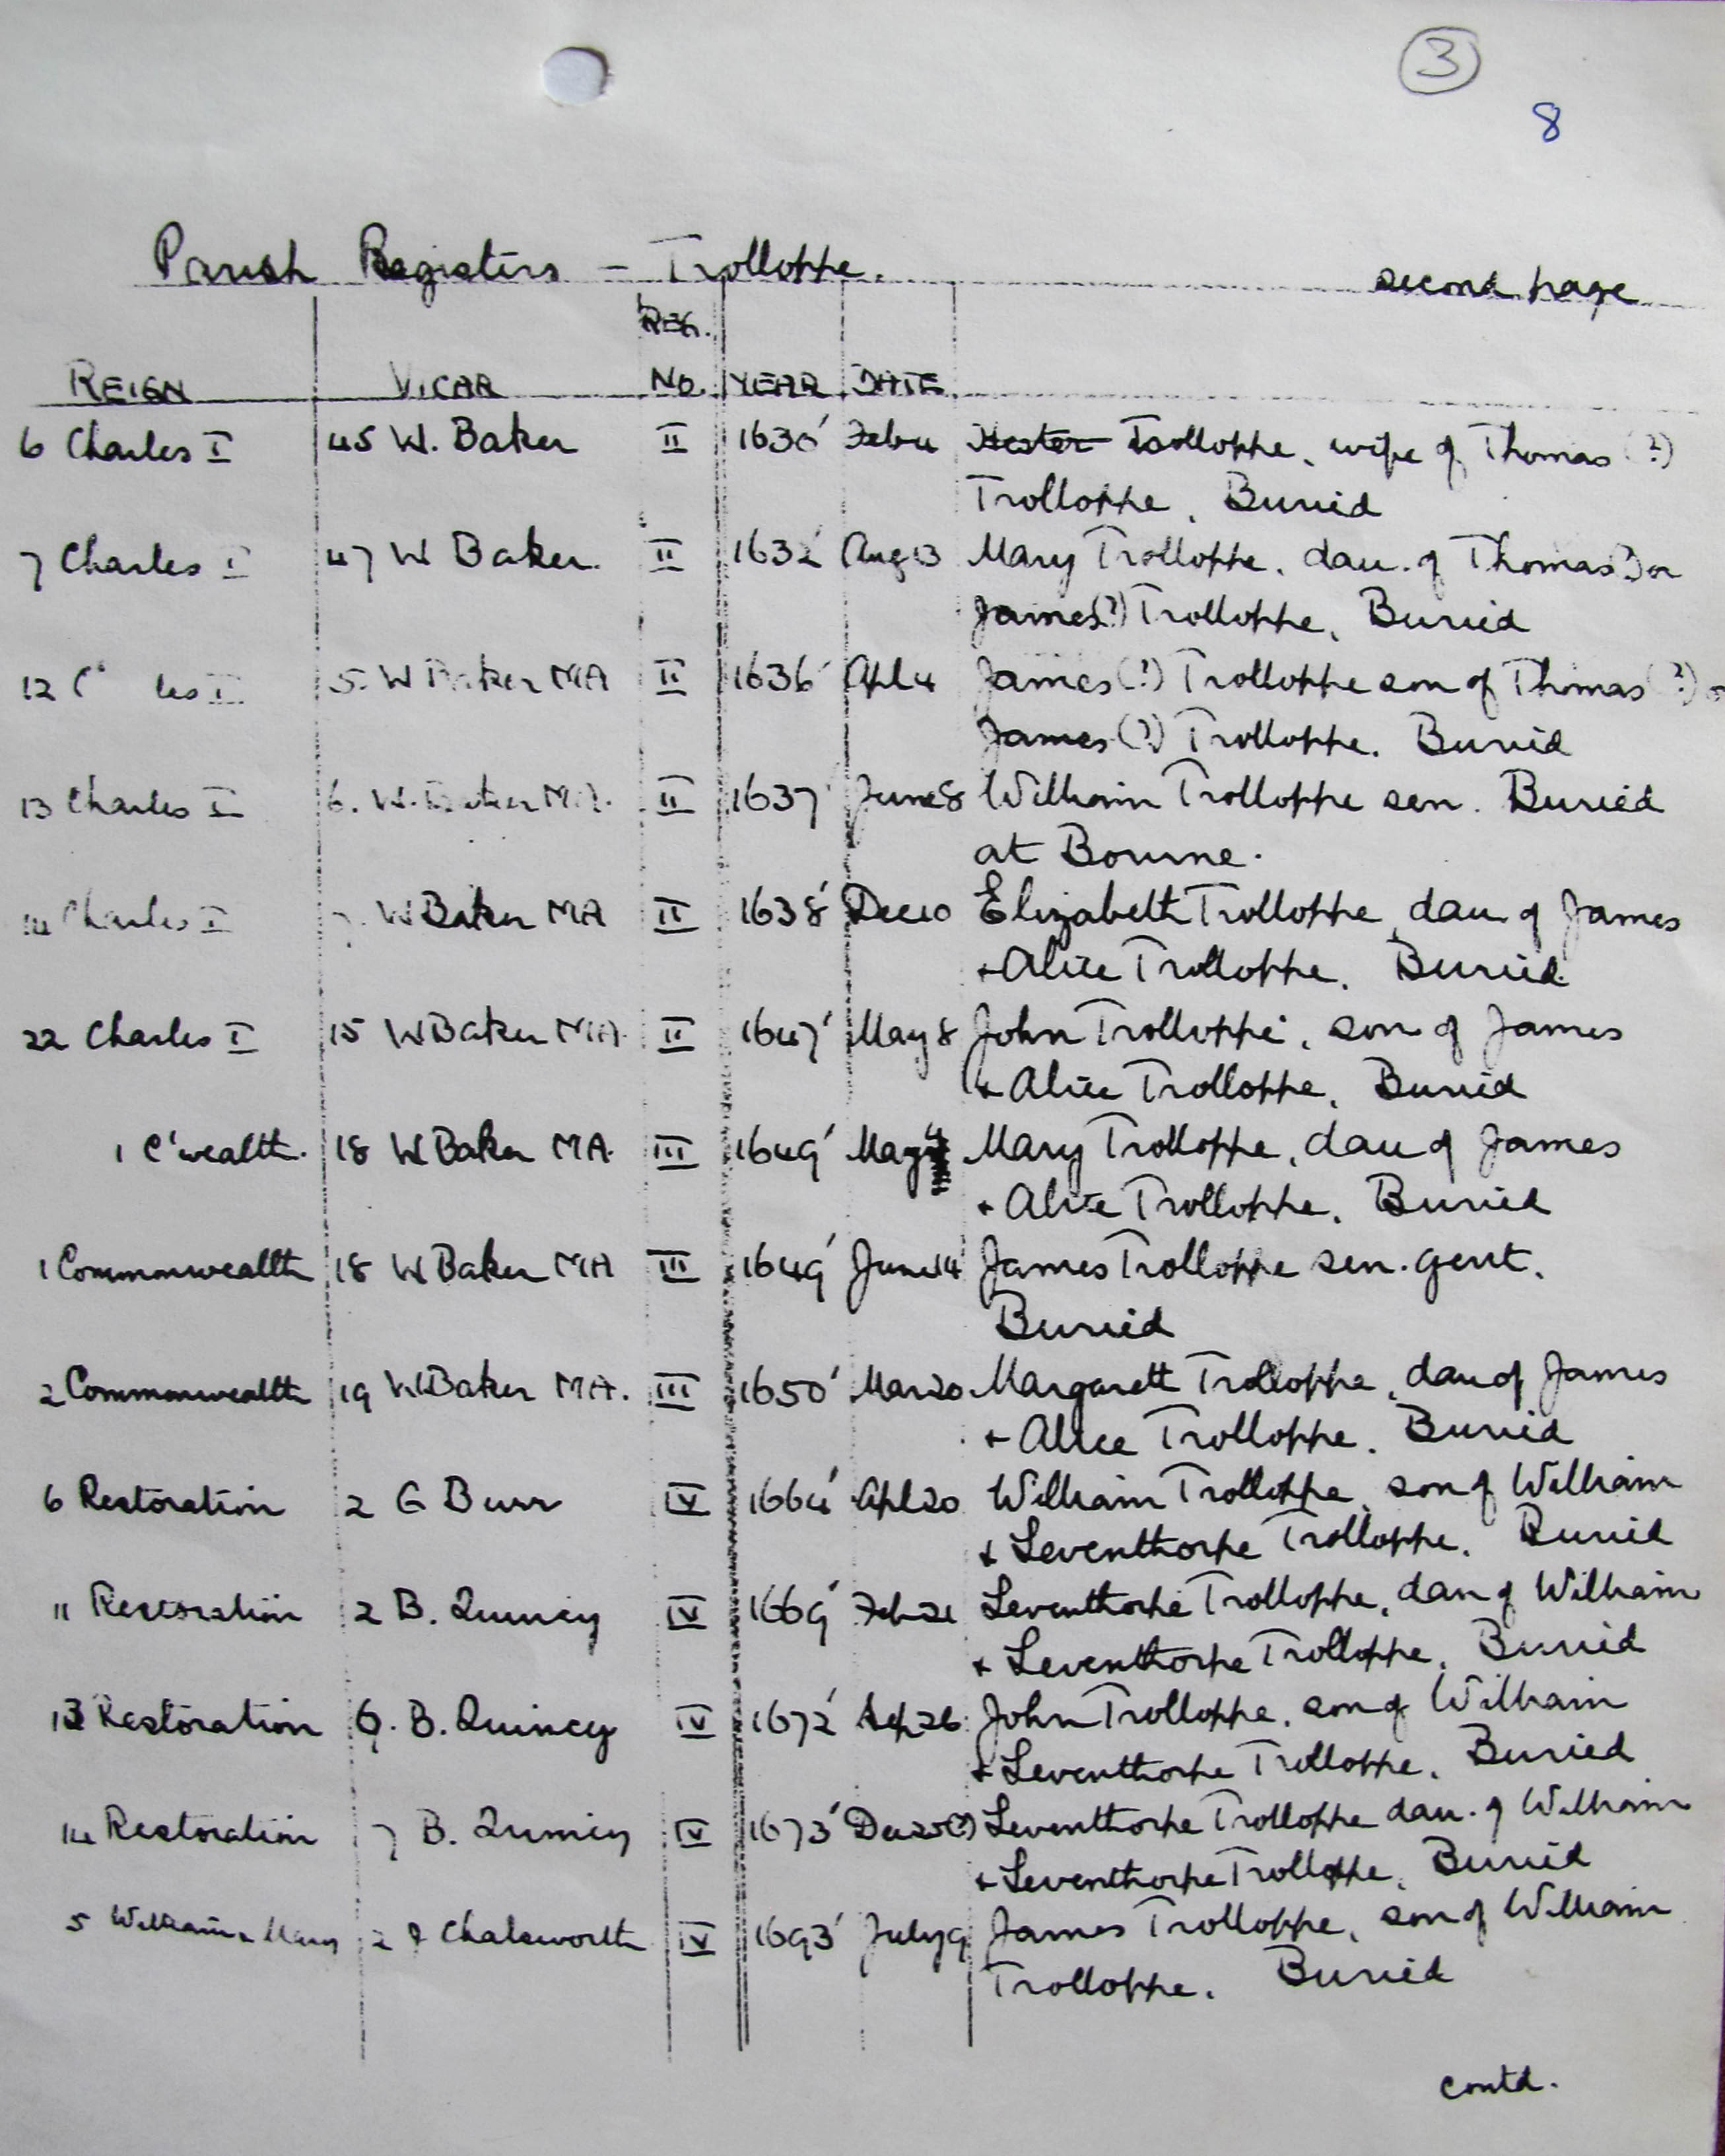 3
8
Parish Registers - Trolloppe.
second page
REG.
REIGN VICAR NO. YEAR DATE
6 Charles I 45 W. Baker II 1630' Feb 4 Hester Trolloppe, wife of Thomas (?)
Trolloppe, Buried
7 Charles I 47 W Baker. II 1632' Aug 13 Mary Trolloppe, dau. of Thomas(?) or
James(?) Trolloppe, Buried
12 C les I 5. W Baker MA II 1636' Apl 4 James (?) Trolloppe son of Thomas (?) or
James (?) Trolloppe. Buried
13 Charles I 6. W. Baker M.A. II 1637' June 8 William Trolloppe sen. Buried
at Bourne.
14 Charles I W Baker MA II 1638' Dec 10 Elizabeth Trolloppe, dau of James
+ Alice Trolloppe. Buried.
22 Charles I 15 W Baker MA. II 1647' May 8 John Trolloppe, son of James
+ Alice Trolloppe, Buried
1 C'wealth. 18 W Baker MA. III 1649' May Mary Trolloppe, dau of James
+ Alice Trolloppe, Buried
1 Commonwealth 18 W Baker MA III 1649' June 14 James Trolloppe sen. gent.
Buried
2 Commonwealth 19 W Baker MA. III 1650' Mar 20 Margarett Trolloppe, dau of James
+ Alice Trolloppe. Buried
6 Restoration 2 G Burr IV 1664' Apl 20 William Trolloppe, son of William
+ Leventhorpe Trolloppe. Buried
11 Restoration 2 B. Quincy IV 1669' Feb 21 Leventhorpe Trolloppe, dau of William
+ Leventhorpe Trolloppe, Buried
13 Restoration 6. B. Quincy IV 1672' Sep 26 John Trolloppe, son of William
+ Leventhorpe Trolloppe, Buried
14 Restoration 7 B. Quincy IV 1673' Dec 25(?) Leventhorpe Trolloppe dau. of William
+ Leventhorpe Trolloppe, Buried
5 William + Mary 2 J Chalsworth IV 1693' July 9 James Trolloppe, son of William
Trolloppe. Buried
contd.